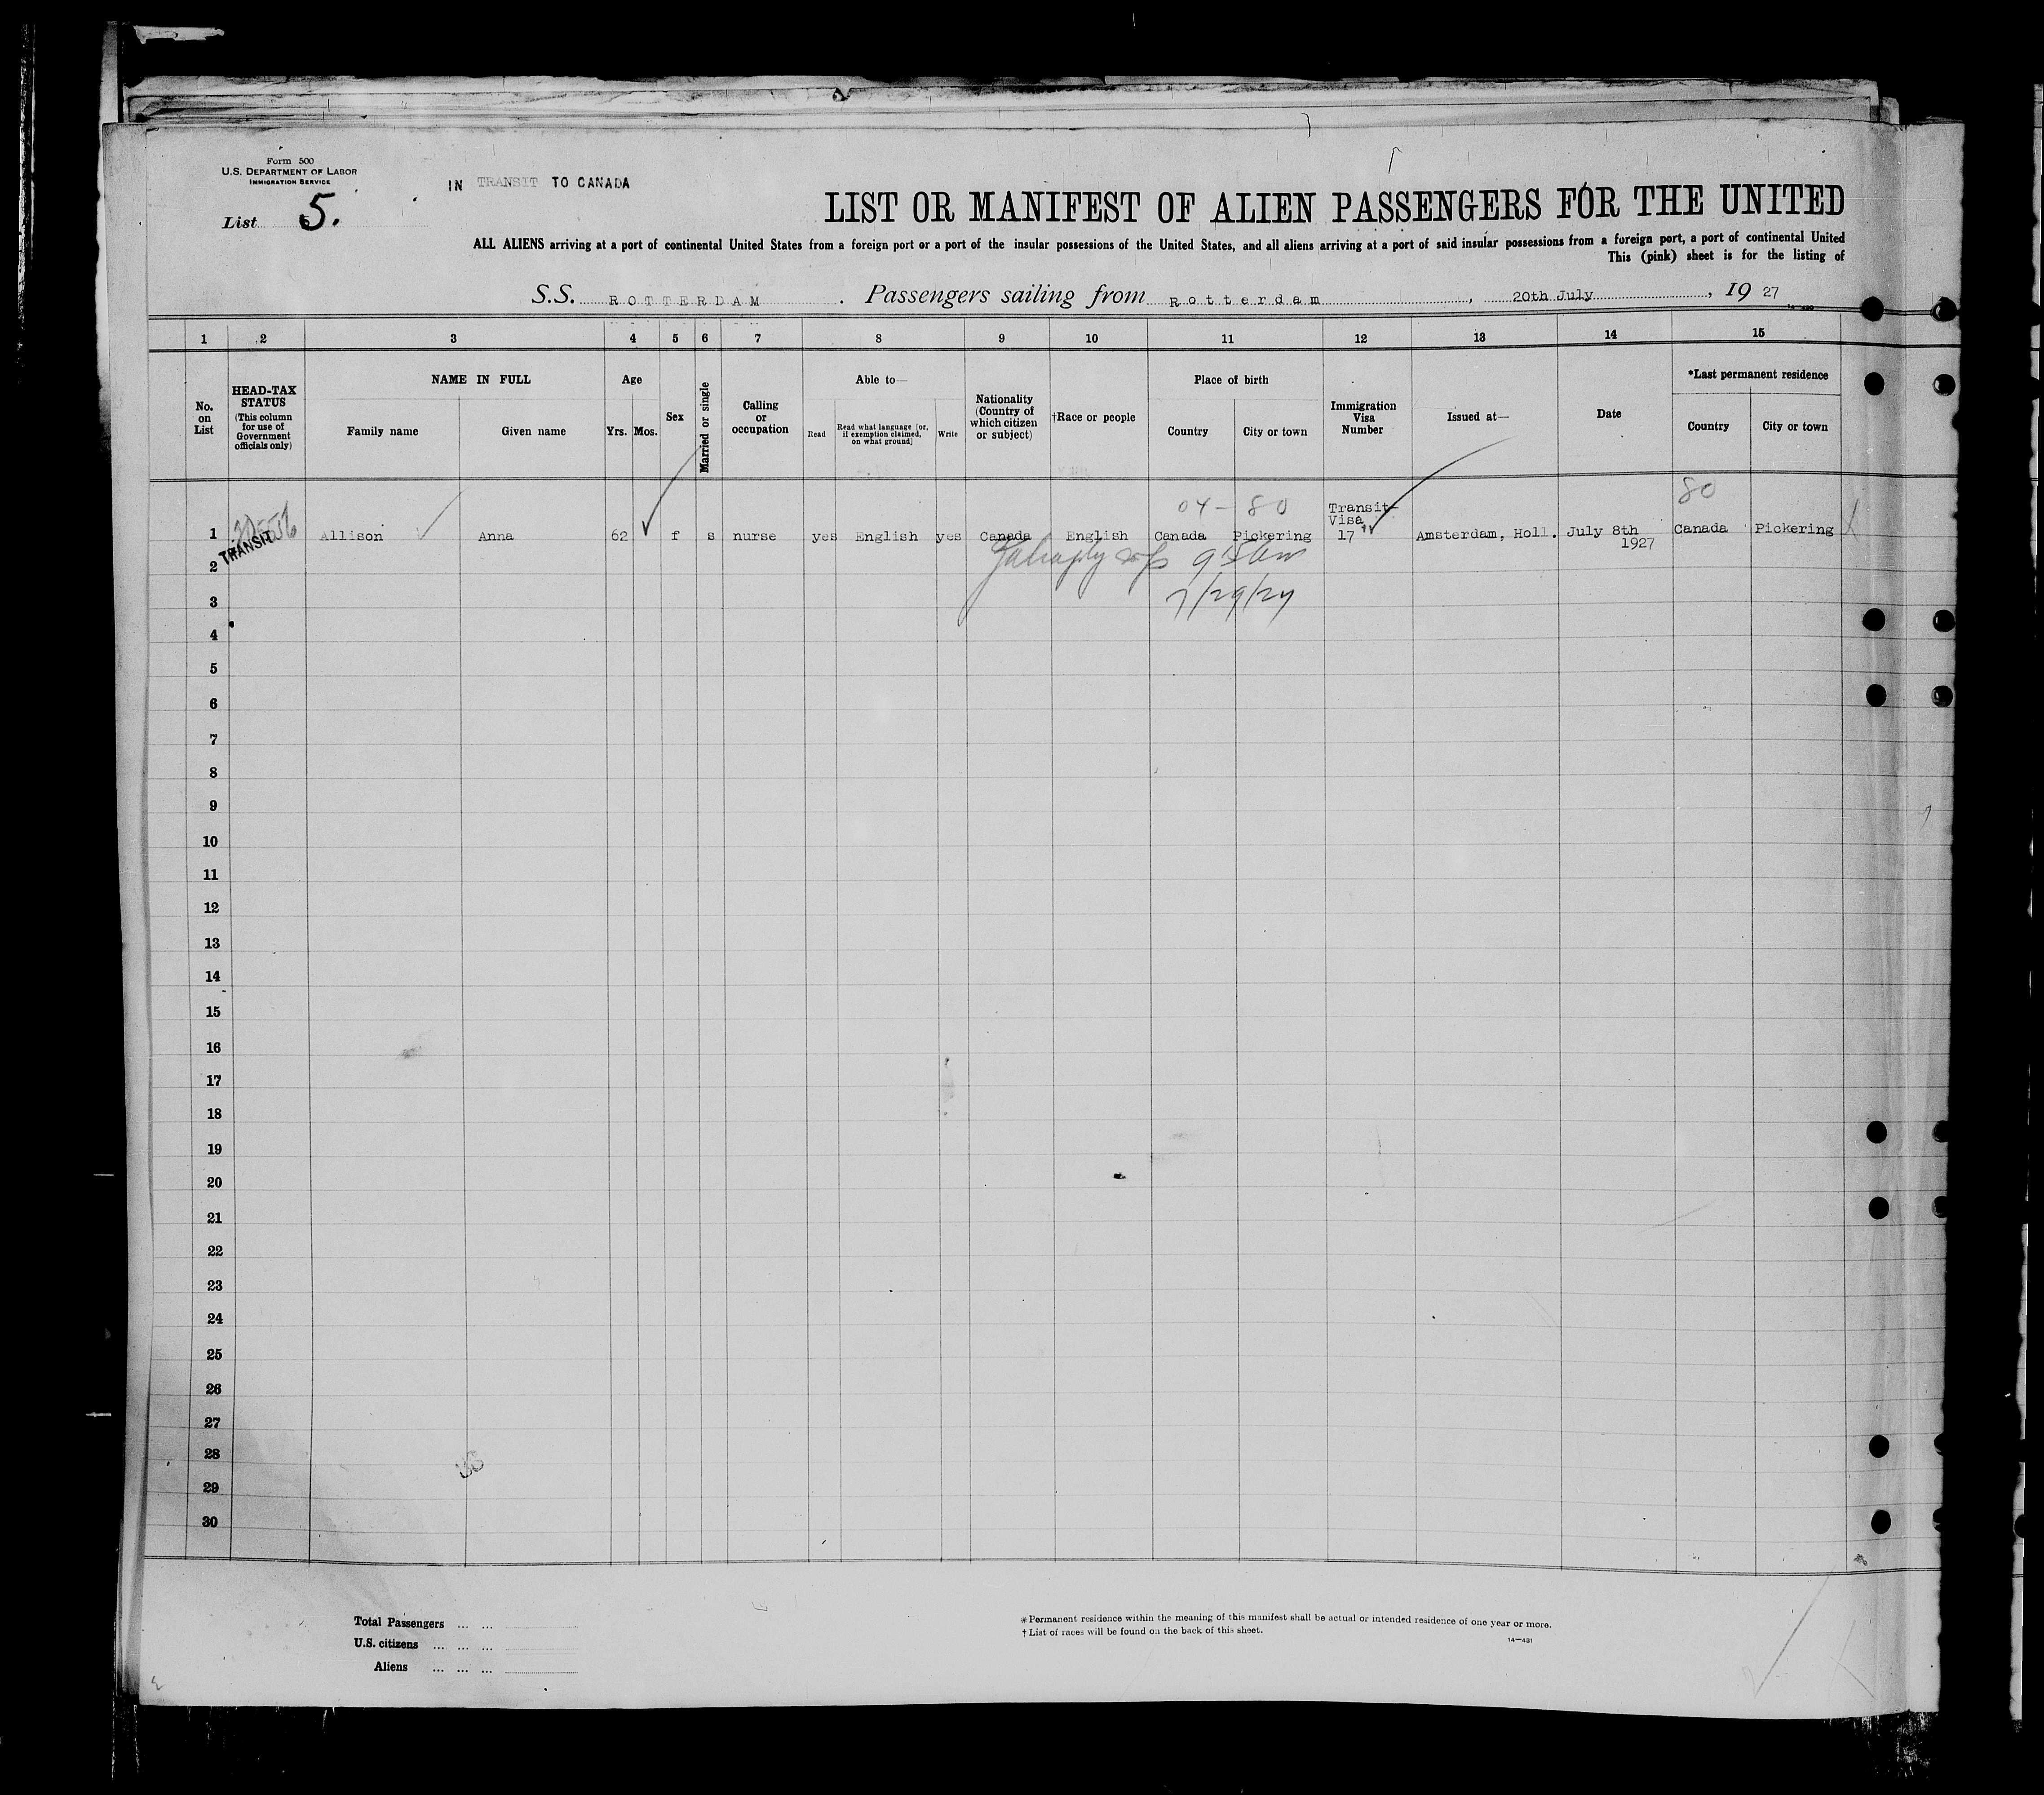 Form 500
U.S. DEPARTMENT OF LABOR
IMMIGRATION SERVICE
IN TRANSIT TO CANADA
List 5.
LIST OR MANIFEST OF ALIEN PASSENGERS FOR THE UNITED
ALL ALIENS arriving at a port of continental United States from a foreign port or a port of the insular possessions of the United States, and all aliens arriving at a port of said insular possessions from a foreign port, a port of continental United
This (pink) sheet is for the listing of
S.S. ROTTERDAM . Passengers sailing from Rotterdam , 20th July , 19 27
1 2 3 4 5 6 7 8 9 10 11 12 13 14 15
No. on List
HEAD-TAX STATUS
(This column for use of Government officials only)
NAME IN FULL
Family name
Given name
Age
Yrs. Mos.
Sex
Married or single
Calling or occupation
Able to—
Read
Read what language [or, if exemption claimed, on what ground]
Write
Nationality (Country of which citizen or subject)
†Race or people
Place of birth
Country
City or town
Immigration Visa Number
Issued at—
Date
*Last permanent residence
Country
City or town
04 - 80
80
1 TRANSIT Allison Anna 62 f s nurse yes English yes Canada English Canada Pickering Transit- Visa 17 Amsterdam, Holl. July 8th 1927 Canada Pickering
2
7/29/27
3
4
5
6
7
8
9
10
11
12
13
14
15
16
17
18
19
20
21
22
23
24
25
26
27
28
29
30
Total Passengers ... ...
U.S. citizens ... ... ...
Aliens ... ... ...
*Permanent residence within the meaning of this manifest shall be actual or intended residence of one year or more.
†List of races will be found on the back of this sheet.
14—431